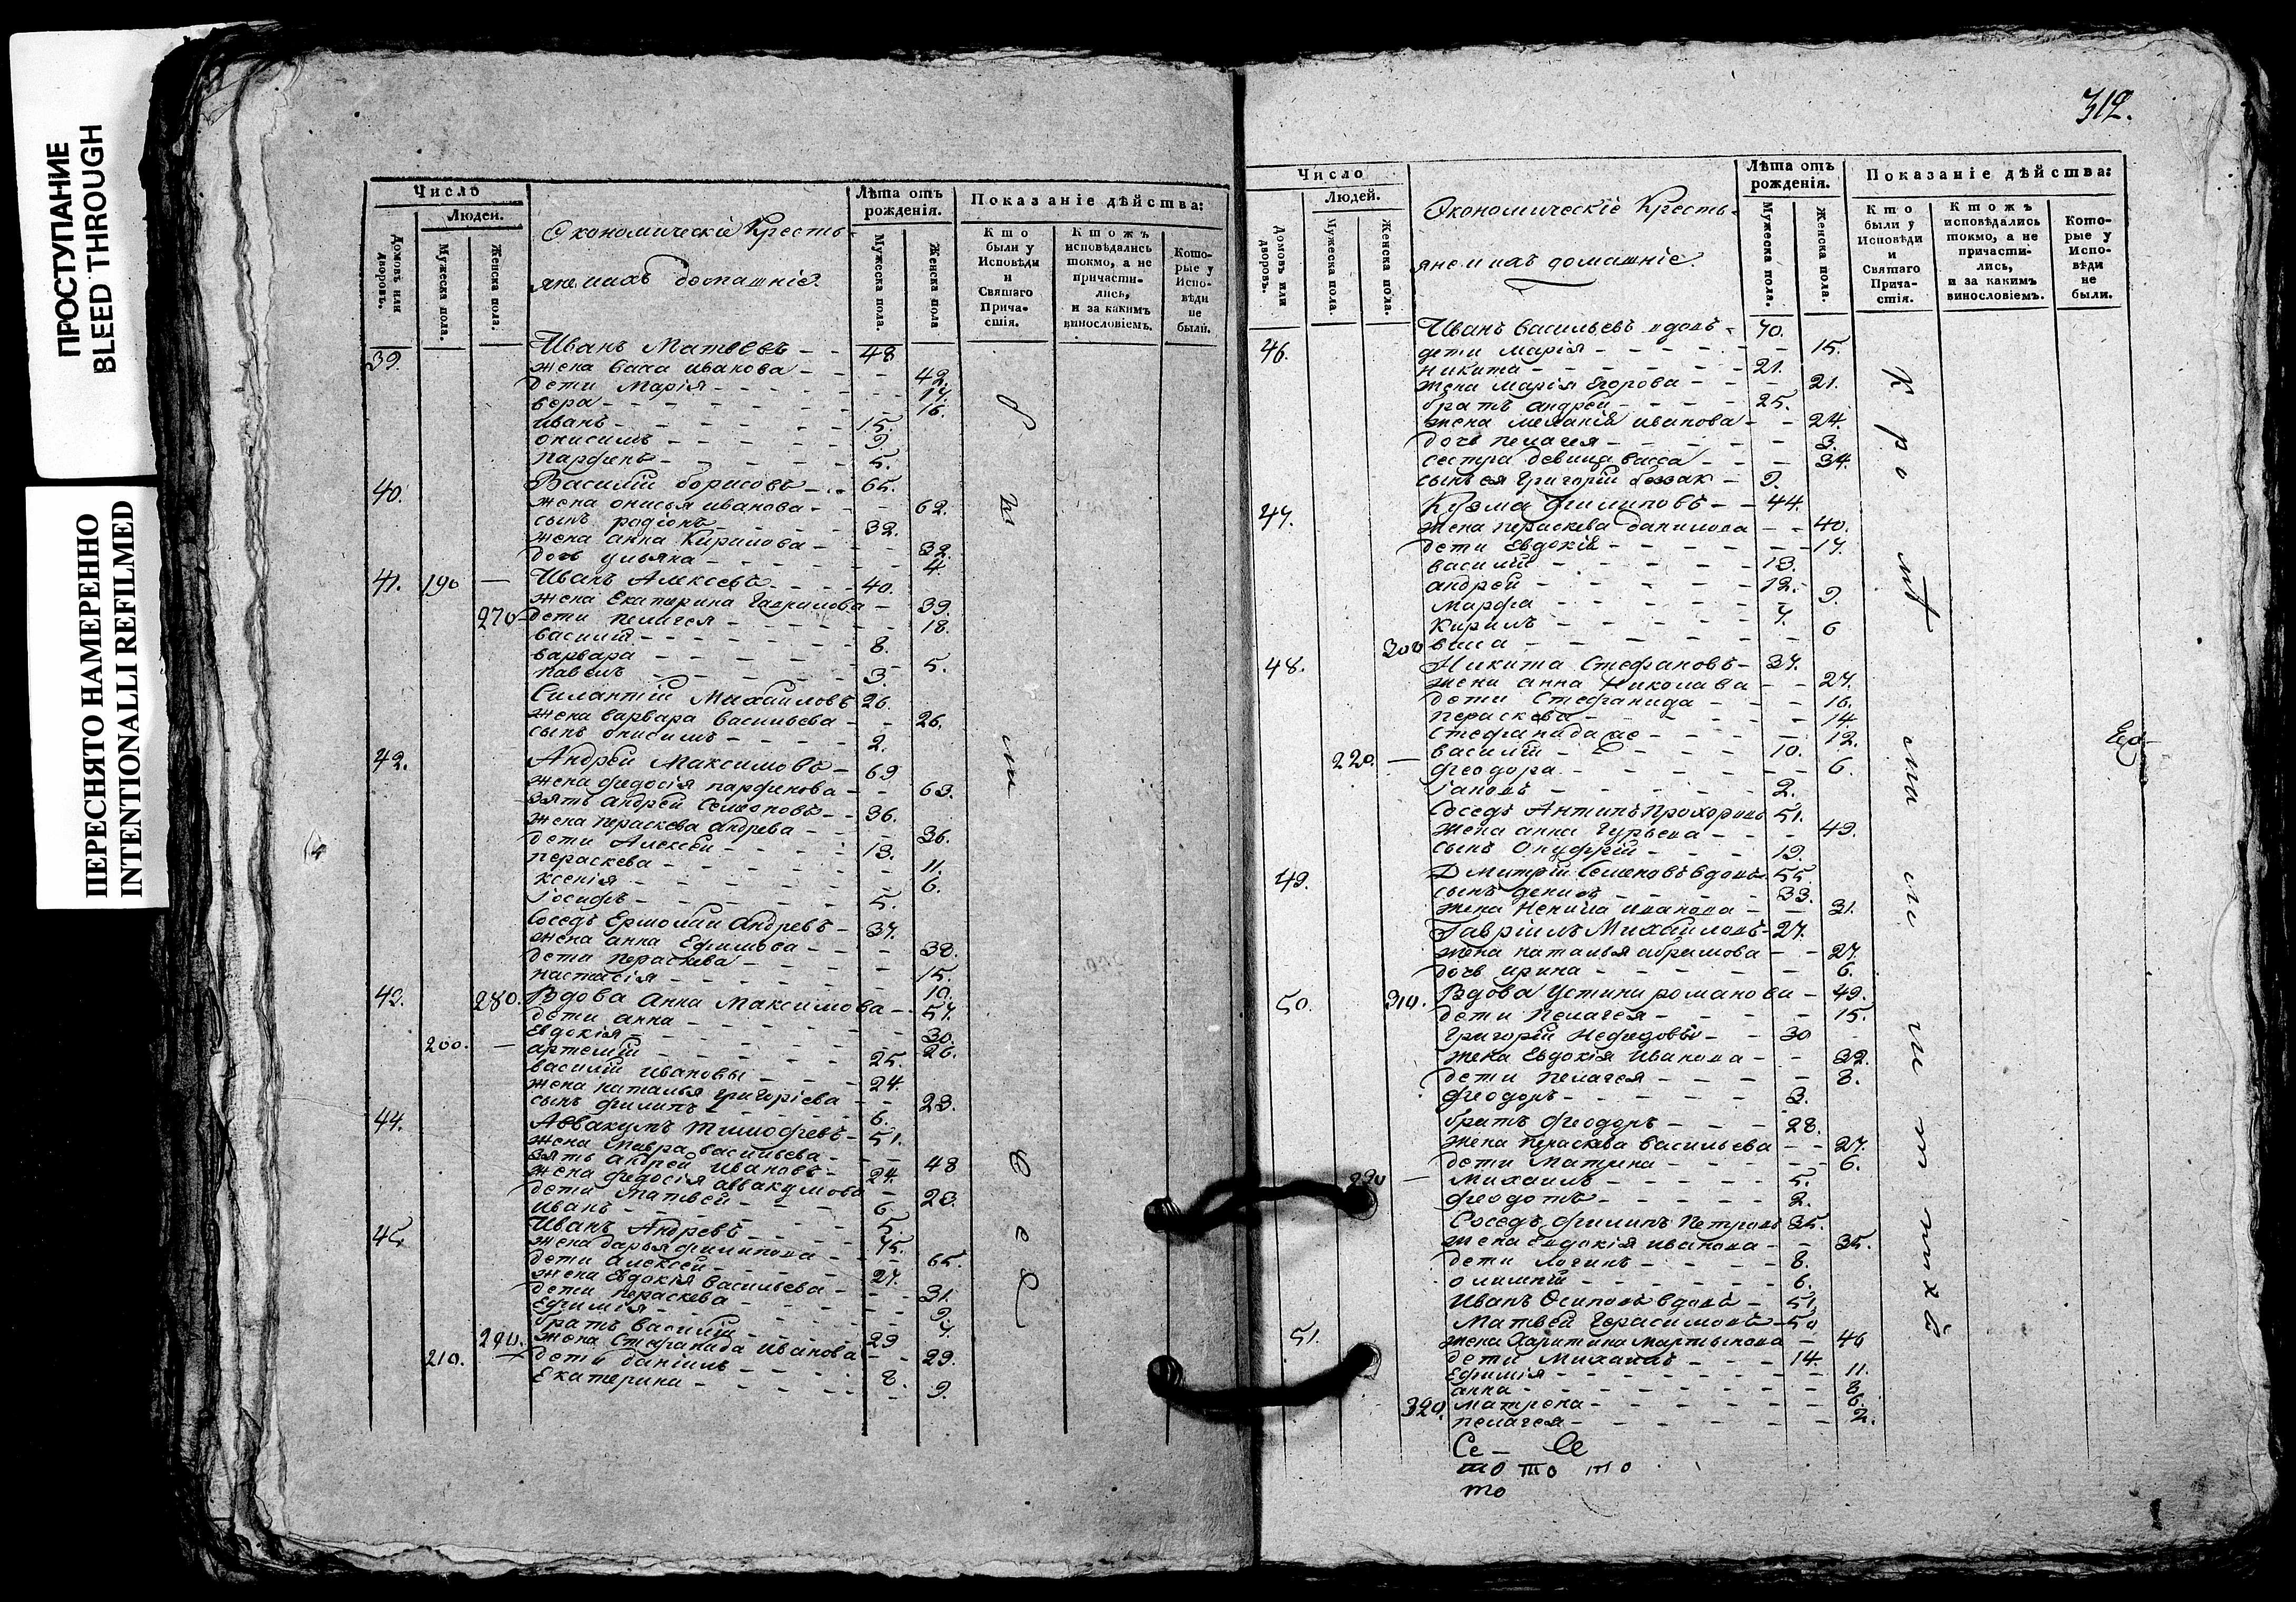 ПРОСТУПАНИЕ
BLEED THROUGH
ПЕРЕСНЯТО НАМЕРЕННО
INTENTIONALLI REFILMED
Число
Людей.
Домовъ или дворовъ.
Мужеска пола.
Женска пола.
Экономическіе Кресть-
яне и ихъ домашніе.
Лѣта отъ рожденія.
Мужеска пола.
Женска пола
Показаніе дѣйства:
Кто были у Исповѣди и Святаго Прича-стія.
Ктожъ исповѣдались токмо, а не причасти-лись, и за какимъ винословіемъ.
Кото-рые у Испо-вѣди не были.
39. Иванъ Матвеевъ - - 48
жена васса иванова - - - 42.
дети Марія - - - - 17.
вера - - - - 16.
иванъ - - - - 15.
онисимъ - - - - 9.
парфенъ - - - - 5.
40. Василій борисовъ - - 65.
жена онисья иванова - - 62.
сынъ родіонъ - - - 32.
жена анна Кирилова - - - 32.
дочь ульяна - - - - 4.
41. 190 — Иванъ Алексевъ - - - 40.
жена Екатерина Гаврилова - 39.
270 дети пелагея - - - - 18.
василій - - - - 8.
варвара - - - - 5.
павелъ - - - - 3.
Силантій Михайловъ 26.
жена варвара васильева - - 26.
сынъ онисимъ - - - 2.
42. Андрей Максимовъ - 69
жена федосія парфенова - - 63.
зять андрей Семеновъ - - 36.
жена пераскева андрева - - 36.
дети Алексей - - - 13.
пераскева - - - - 11.
ксенія - - - - 6.
Іосифъ - - - - 5.
Соседъ Ермолай Андревъ - 37.
жена анна Ефимова - - 38.
дети пераскева - - - 15.
настасія - - - - 10.
43. 280. Вдова Анна Максимова - - 57.
дети анна - - - - 30.
Евдокія - - - - 26.
200. — артемій - - - - 25.
василій ивановы - - - 24.
жена наталья григоріева - - 23.
сынъ филипъ - - - 6.
44. Аввакумъ тимофевъ - 51.
жена мавра васильева - - - 48
зять андрей Ивановъ - - 24.
жена федосія аввакумова - 23.
дети матвей - - - 6.
иванъ - - - - 5.
45. Иванъ Андревъ - - - 75.
жена дарья филипова - - 65.
дети алексей - - - 27.
жена Евдокія Васильева - - 31.
дети пераскева - - - 9.
Ефимія - - - - 7.
братъ василій - - - 29
290. жена Стефанида иванова - - 29.
210. дети даніилъ - - - 8.
Екатерина - - - - 9.
312.
Число
Людей.
Домовъ или дворовъ.
Мужеска пола.
Женска пола.
Экономическіе Кресть-
яне и ихъ домашніе.
Лѣта отъ рожденія.
Мужеска пола.
Женска пола.
Показаніе дѣйства:
Кто были у Исповѣди и Святаго Прича-стія.
Ктожъ исповѣдались токмо, а не причасти-лись, и за какимъ винословіемъ.
Кото-рые у Испо-вѣди не были.
46. Иванъ васильевъ вдовъ - 70.
дети марія - - - - 15.
никита - - - - 21.
жена марія Егорова - - - 21.
братъ андрей - - - - 25.
жена меланія иванова - - 24.
дочь пелагея - - - - 3.
сестра девица васса - - - 34.
сынъ ея григорій - 9.
47. Кузма филиповъ - - 44.
жена пераскева данилова - - 40.
дети Евдокія - - - - 17.
василій - - - - 13.
андрей - - - - 12.
марфа - - - - 9.
Кирилъ - - - - 7.
300 васса - - - - 6
48. Никита Стефановъ - 37.
жена анна Николава - - 27.
дети Стефанида - - - 16.
пераскева - - - - 14.
стефанида - - - 12.
220. — василій - - - - 10.
феодора - - - - 6.
- - - - 2.
Соседъ Антипъ Прохоровъ 51.
жена анна гурьева - - - 49.
сынъ Онуфрій - - - 19.
49. Дмитрій Семеновъ вдовъ. 55.
сынъ денисъ - - - - 33.
жена Ксенія иванова - - 31.
Гавріилъ Михайловъ - 27.
жена наталья абрамова - - 27.
дочь ирина - - - - 6.
50. 310. Вдова Устинія романова - 49.
дети Пелагея - - - - 15.
Григорій Нефедовъ - - 30
жена Евдокія Иванова - - 32.
дети пелагея - - - - 8.
феодоръ - - - - 3.
братъ феодоръ - - - 28.
жена пераскева васильева - - 27.
дети Матрена - - - - 6.
230 — михаилъ - - - - 5.
федотъ - - - - 2.
Соседъ филипъ Петровъ 35.
жена евдокія иванова - - 35.
дети логинъ - - - 8.
- - - - 6.
Иванъ Осиповъ вдовъ - 51.
51. Матвей Герасимовъ - 50
жена Харитина мартынова - 46
дети Михаилъ - - - 14.
Ефимія - - - - 11.
анна - - - - 8.
320. матрена - - - - 6.
пелагея - - - - 2.
Се - Се
то то то
то